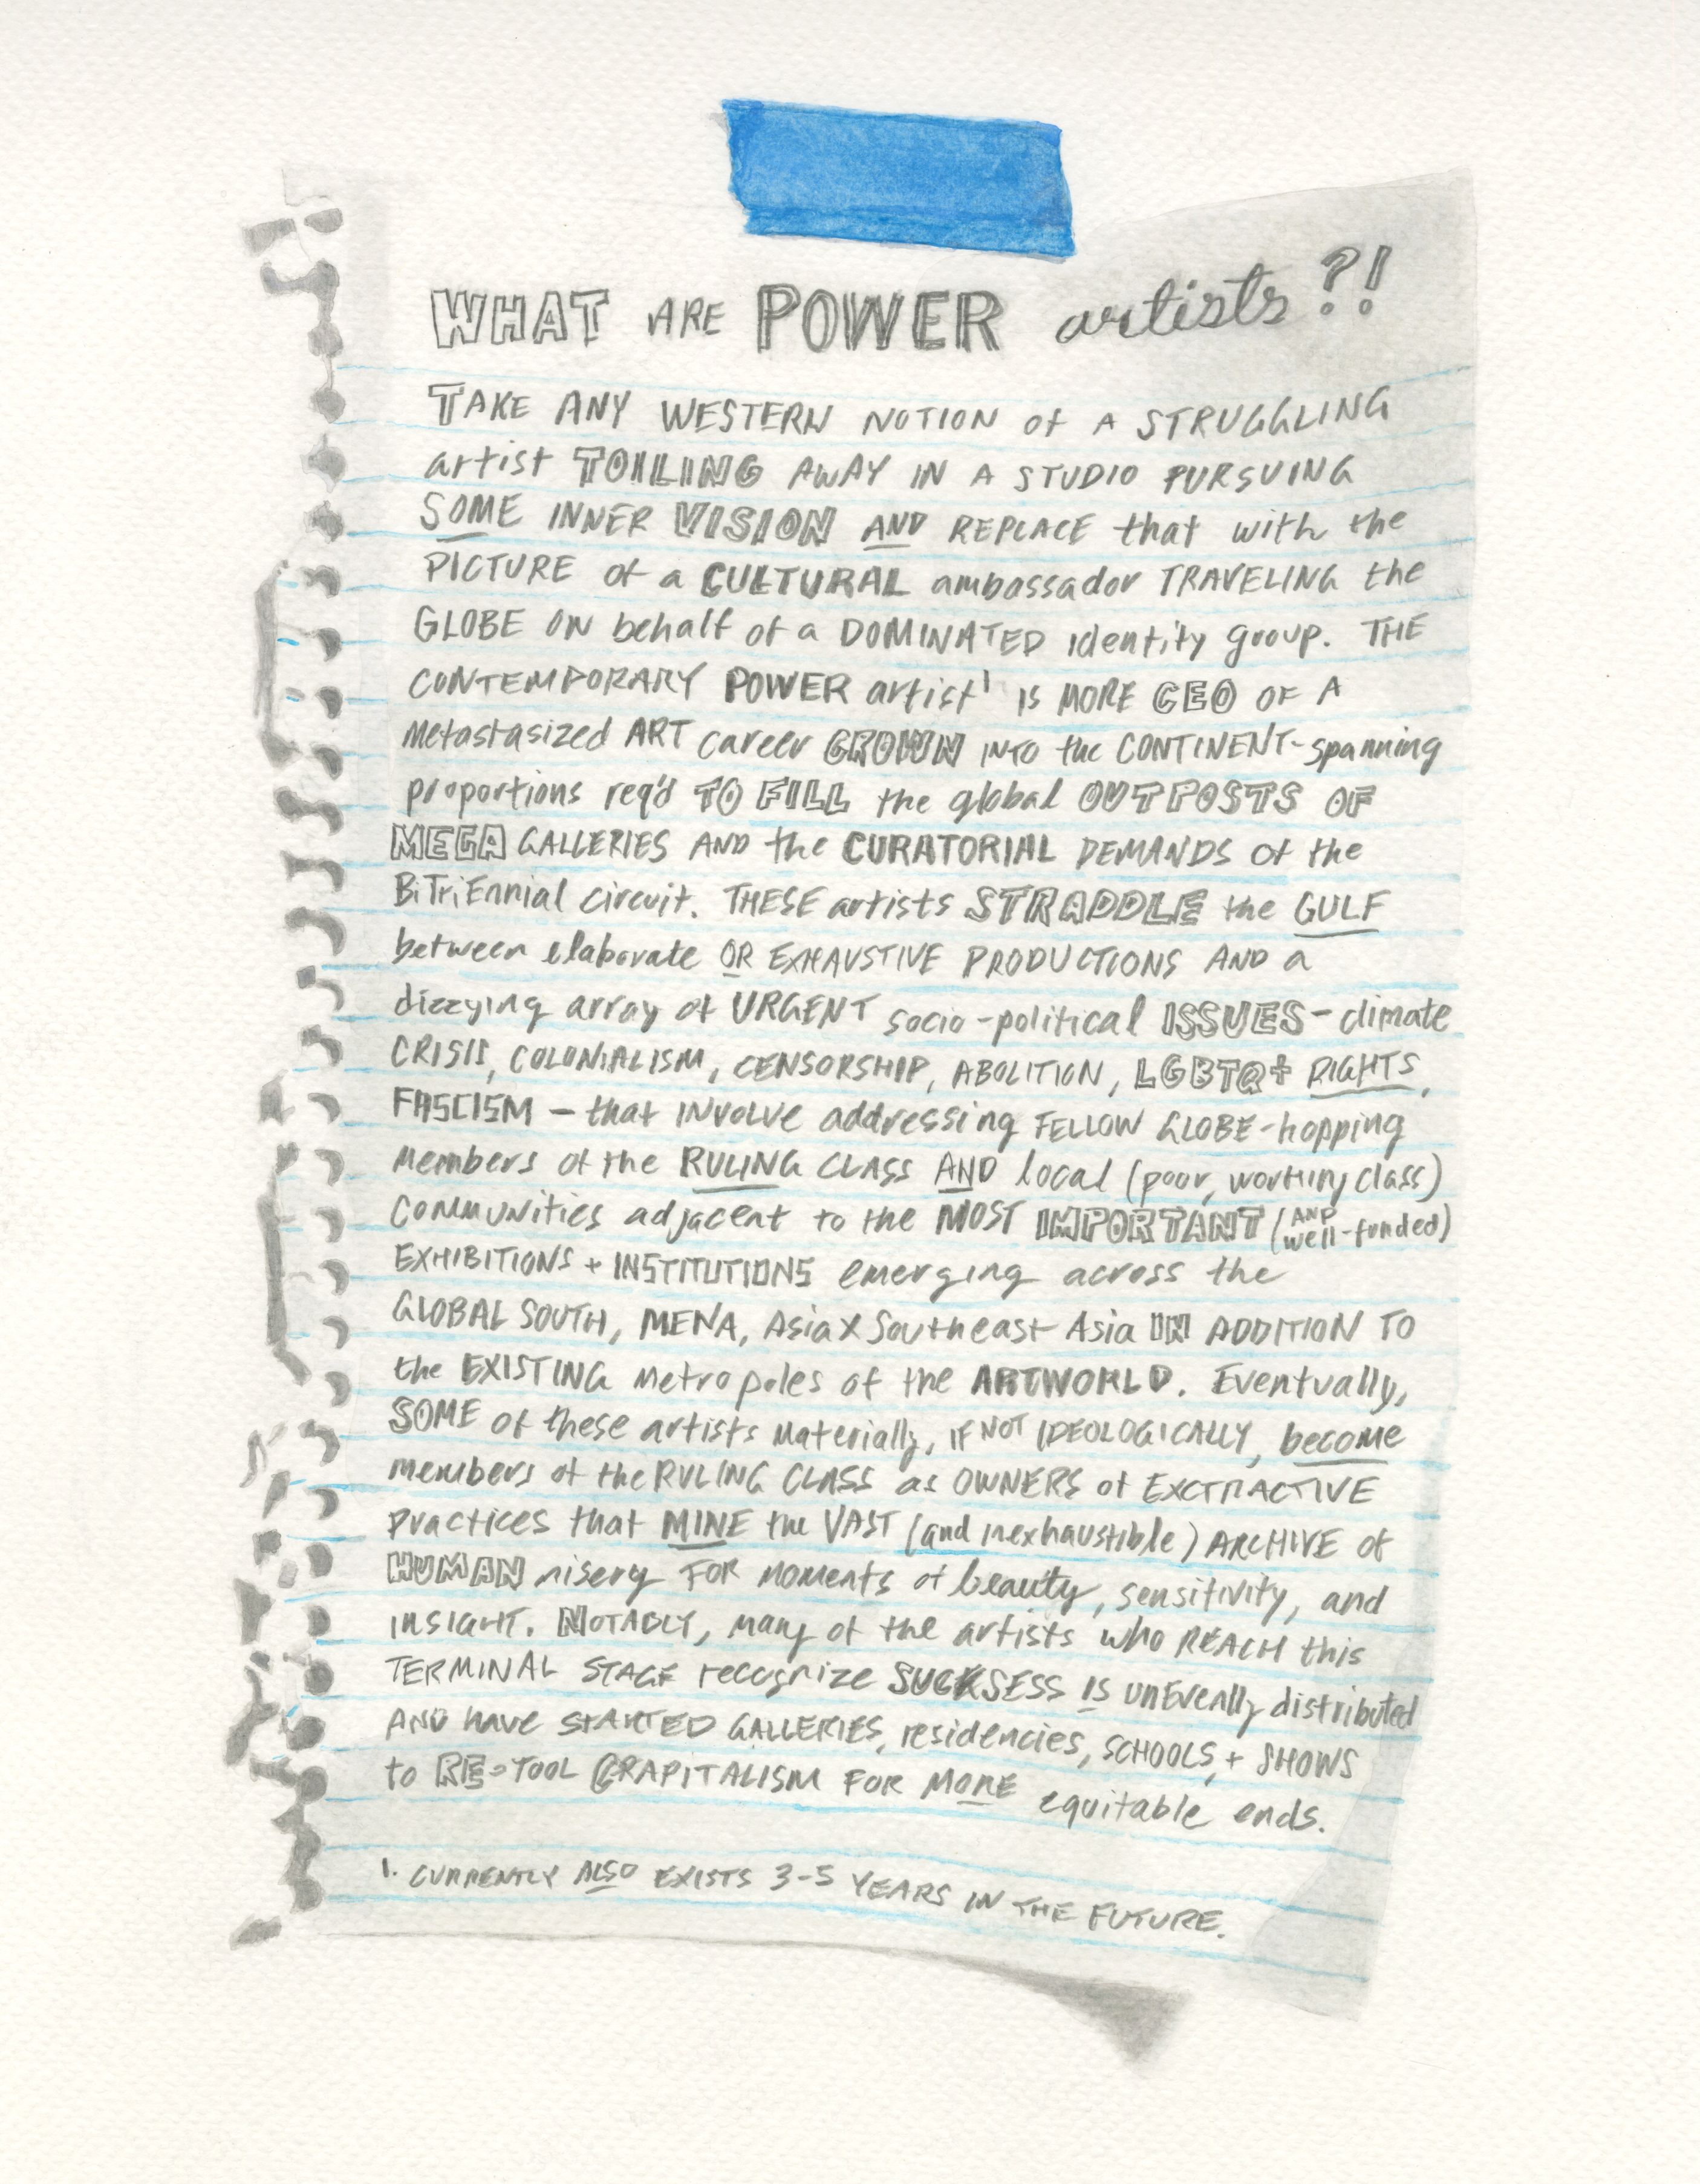 WHAT ARE POWER artists?!
TAKE ANY WESTERN NOTION of A STRUGGLING
artist TOILING AWAY IN A STUDIO PURSUING
SOME INNER VISION AND REPLACE that with the
PICTURE of a CULTURAL ambassador TRAVELING the
GLOBE ON behalf of a DOMINATED Identity group. THE
CONTEMPORARY POWER artist¹ IS MORE CEO OF A
Metastasized ART career GROWN INTO the CONTINENT-spanning
proportions req'd TO FILL the global OUTPOSTS OF
MEGA GALLERIES AND the CURATORIAL DEMANDS of the
BiTriEnnial circuit. THESE artists STRADDLE the GULF
between elaborate OR EXHAUSTIVE PRODUCTIONS AND a
dizzying array of URGENT socio-political ISSUES - climate
CRISIS, COLONIALISM, CENSORSHIP, ABOLITION, LGBTQ+ RIGHTS,
FASCISM - that INVOLVE addressing FELLOW GLOBE-hopping
Members of the RULING CLASS AND local (poor, working class)
COMMUNITIES adjacent to the MOST IMPORTANT (AND well-funded)
EXHIBITIONS + INSTITUTIONS emerging across the
GLOBAL SOUTH, MENA, Asia X Southeast Asia IN ADDITION TO
the EXISTING Metropoles of the ARTWORLD. Eventually,
SOME of these artists Materially, IF NOT IDEOLOGICALLY, become
Members of the RULING CLASS as OWNERS of EXCTRACTIVE
practices that MINE the VAST (and inexhaustible) ARCHIVE of
HUMAN misery FOR MOMENTS of beauty, sensitivity, and
INSIGHT. NOTABLY, many of the artists who REACH this
TERMINAL STAGE recognize SUCKSESS IS unEvenlly distributed
AND have STARTED GALLERIES, residencies, SCHOOLS, + SHOWS
to RE-TOOL CRAPITALISM FOR MORE equitable ends.
1. CURRENTLY ALSO EXISTS 3-5 YEARS IN THE FUTURE.